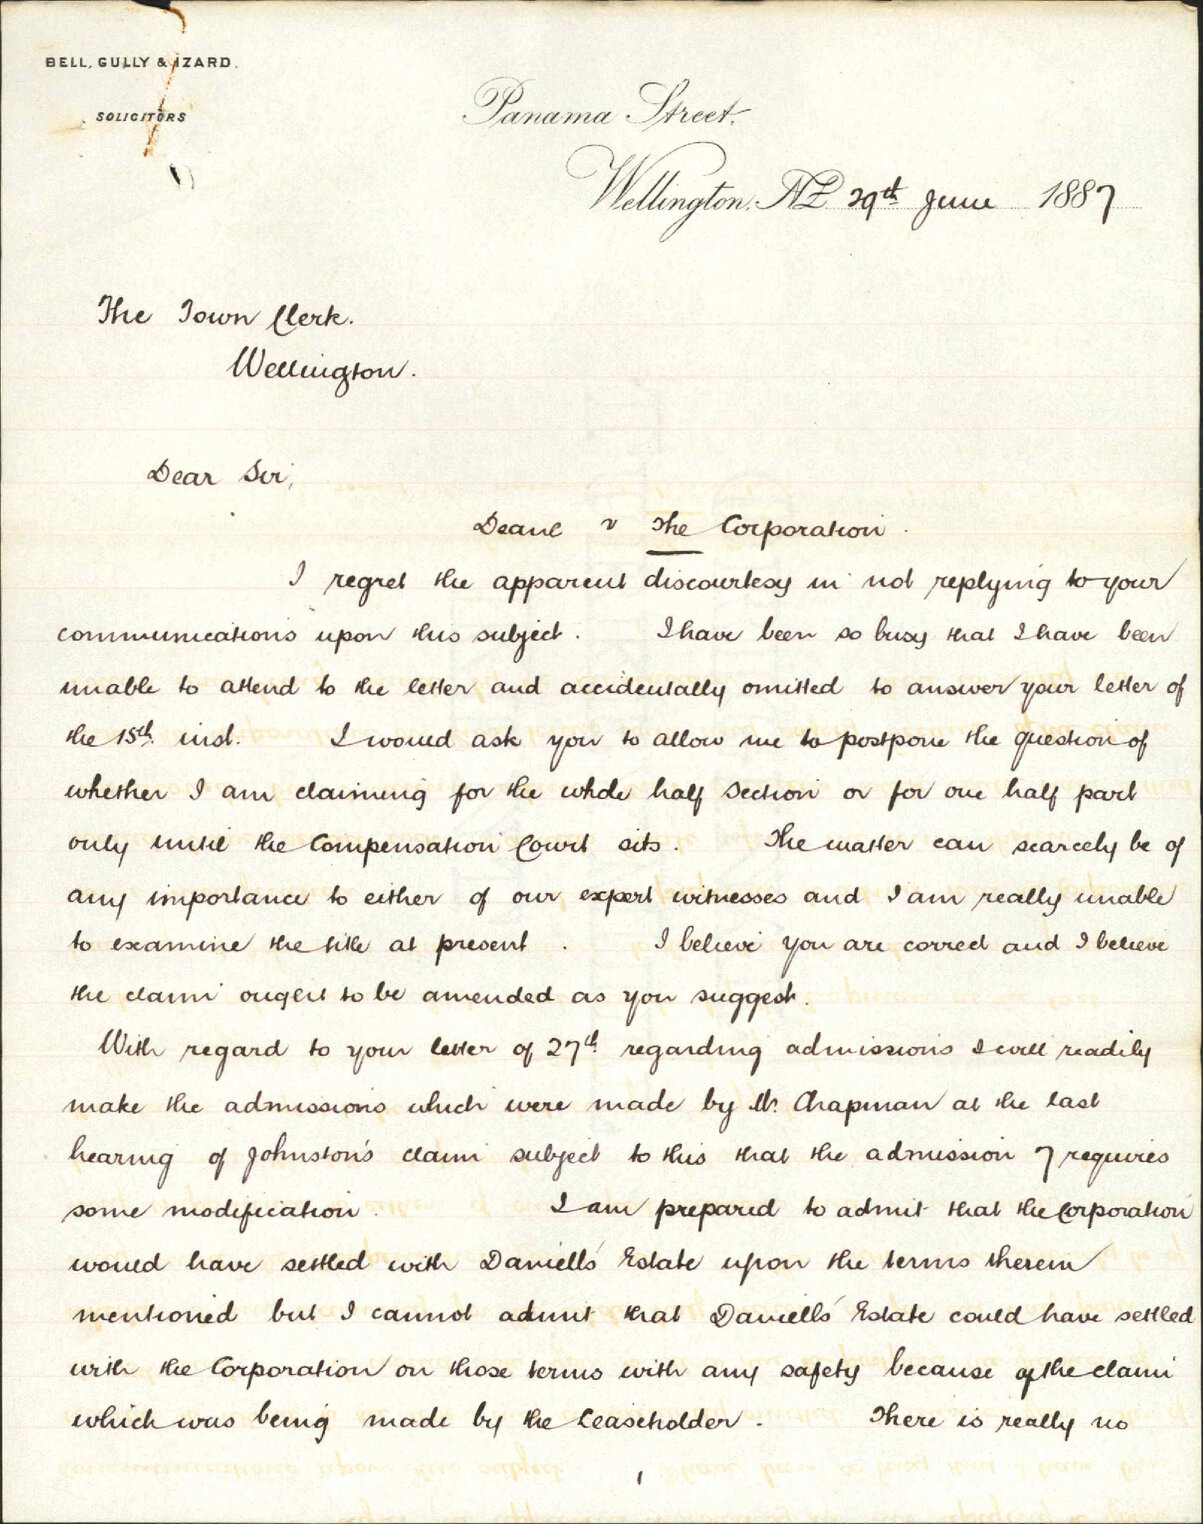 BELL, GULLY & IZARD.
SOLICITORS
Panama Street.
Wellington. NZ 29th June 1887
The Town Clerk.
Wellington.
Dear Sir,
Deane v The Corporation.
I regret the apparent discourtesy in not replying to your
communications upon this subject. I have been so busy that I have been
unable to attend to the letter and accidentally omitted to answer your letter of
the 15th inst. I would ask you to allow me to postpone the question of
whether I am claiming for the whole half section or for one half part
only until the Compensation Court sits. The matter can scarcely be of
any importance to either of our expert witnesses and I am really unable
to examine the title at present. I believe you are correct and I believe
the claim ought to be amended as you suggest.
With regard to your letter of 27th regarding admissions I will readily
make the admissions which were made by Mr. Chapman at the last
hearing of Johnston's claim subject to this that the admission 7 requires
some modification. I am prepared to admit that the Corporation
would have settled with Daniell's Estate upon the terms therein
mentioned but I cannot admit that Daniell's Estate could have settled
with the Corporation on those terms with any safety because of the claim
which was being made by the Leaseholder. There is really no
1